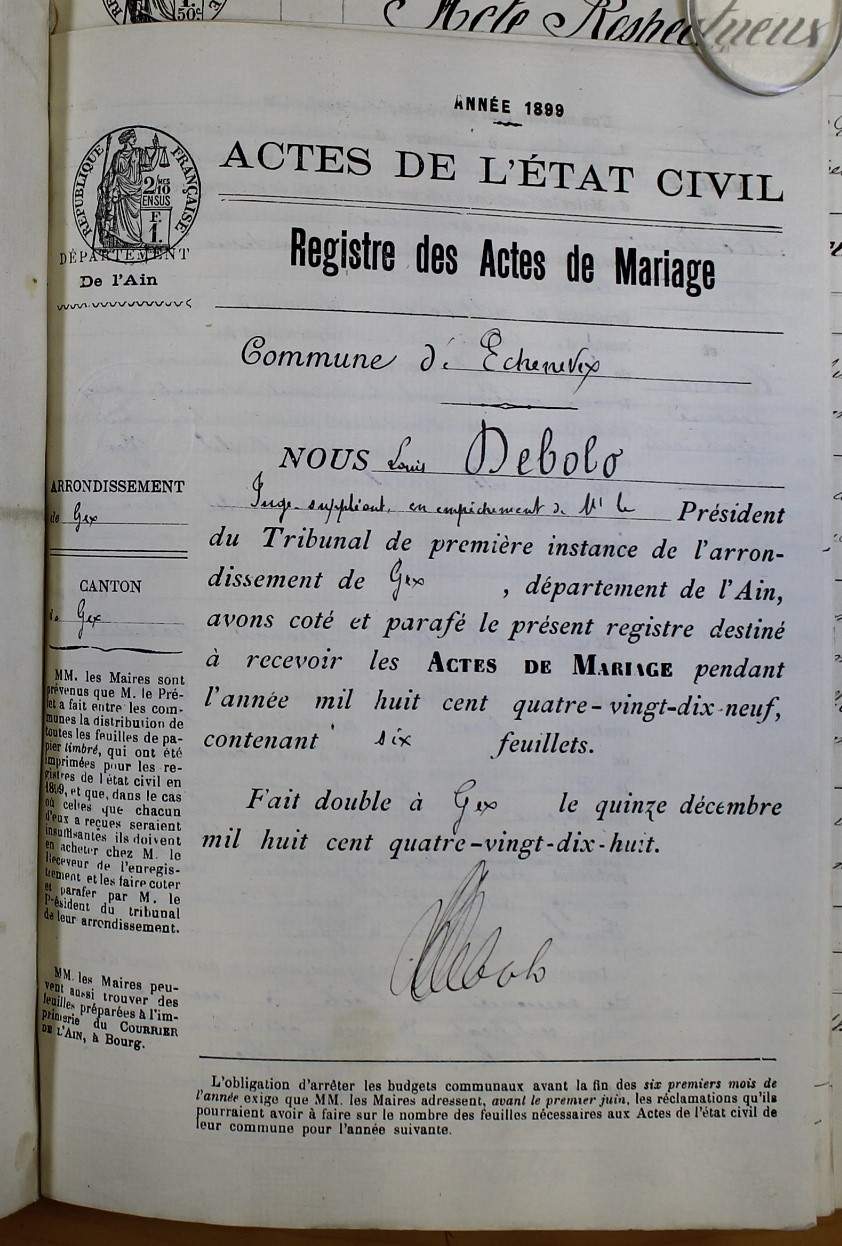 1.50c
Acte Respectueux
ANNÉE 1899
ACTES DE L'ÉTAT CIVIL
RÉPUBLIQUE FRANÇAISE
2/10 MES
EN SUS
F.
1.
DÉPARTEMENT
De l'Ain
Registre des Actes de Mariage
Commune d'Echenevex
NOUS Louis Debolo
Juge suppléant, en empêchement de Mr le Président
du Tribunal de première instance de l'arron-
dissement de Gex, département de l'Ain,
avons coté et parafé le présent registre destiné
à recevoir les ACTES DE MARIAGE pendant
l'année mil huit cent quatre-vingt-dix-neuf,
contenant six feuillets.
Fait double à Gex le quinze décembre
mil huit cent quatre-vingt-dix-huit.
Debolo
ARRONDISSEMENT
de Gex
CANTON
de Gex
MM. les Maires sont
prévenus que M. le Pré-
fet a fait entre les com-
munes la distribution de
toutes les feuilles de pa-
pier timbré, qui ont été
imprimées pour les re-
gistres de l'état civil en
1899, et que, dans le cas
où celles que chacun
d'eux a reçues seraient
insuffisantes ils doivent
en acheter chez M. le
Receveur de l'enregis-
trement et les faire coter
et parafer par M. le
Président du tribunal
de leur arrondissement.
MM. les Maires peu-
vent aussi trouver des
feuilles préparées à l'im-
primerie du COURRIER
DE L'AIN, à Bourg.
L'obligation d'arrêter les budgets communaux avant la fin des six premiers mois de
l'année exige que MM. les Maires adressent, avant le premier juin, les réclamations qu'ils
pourraient avoir à faire sur le nombre des feuilles nécessaires aux Actes de l'état civil de
leur commune pour l'année suivante.